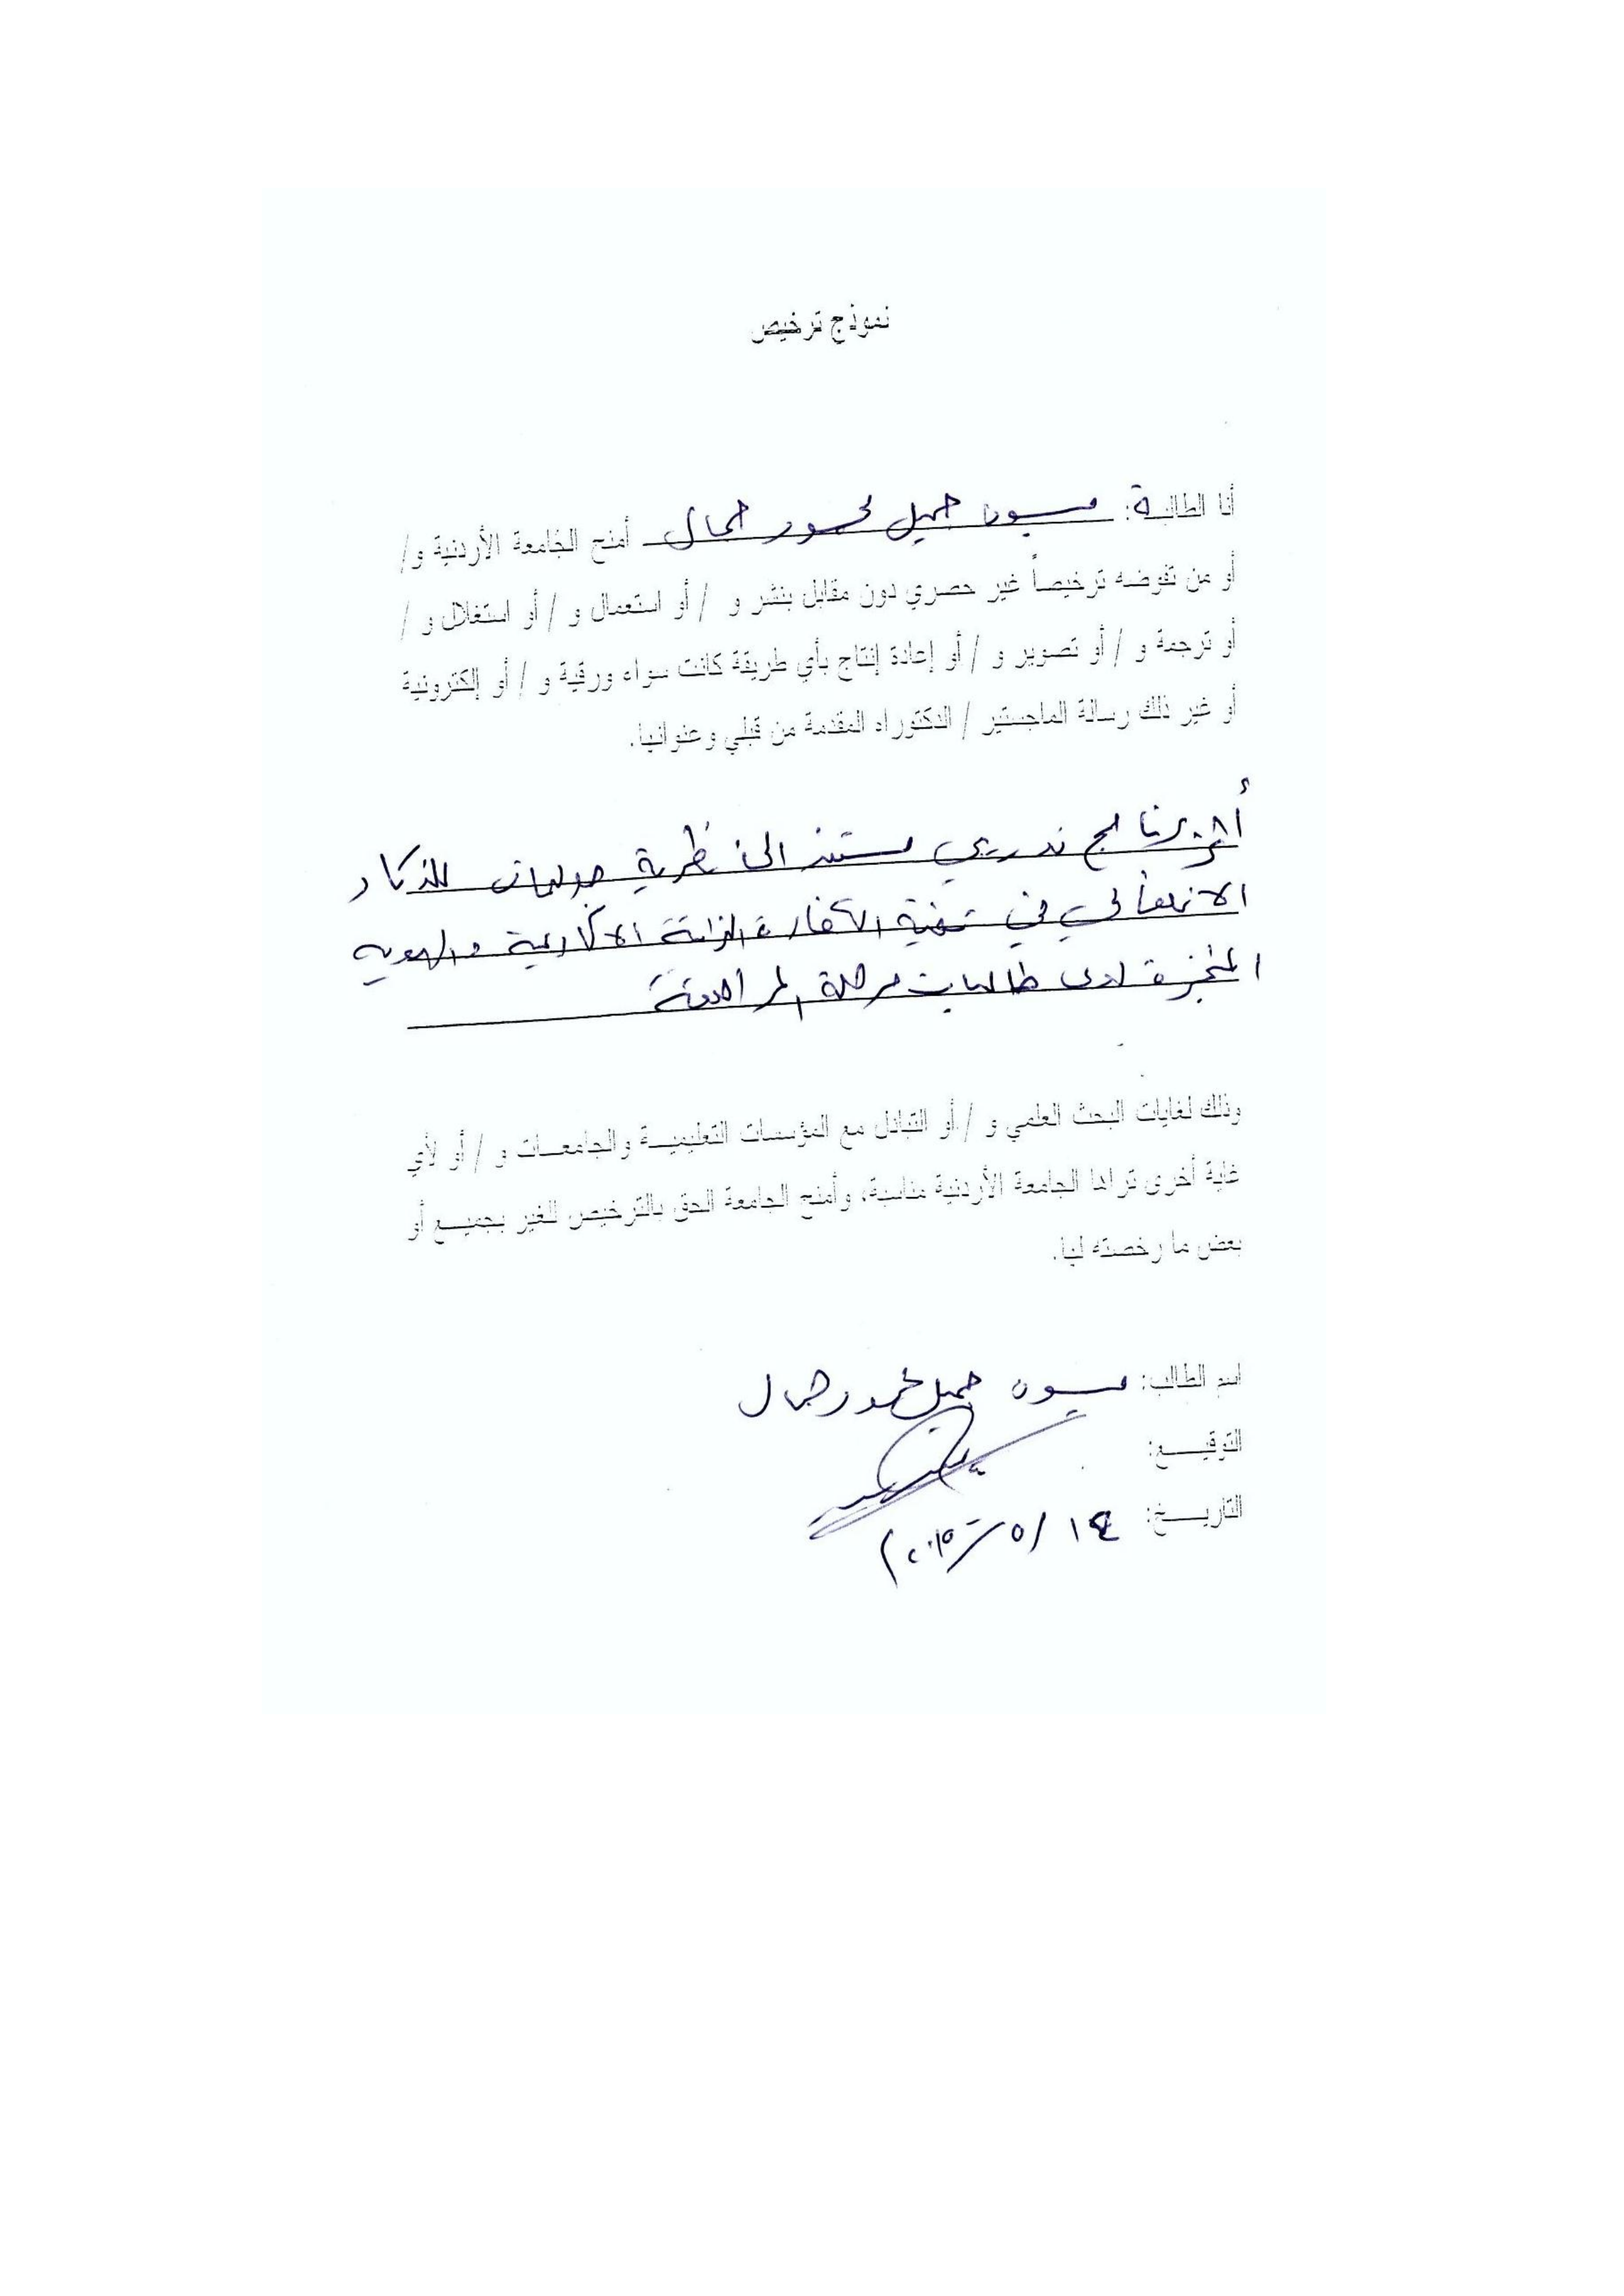 نموذج ترخيص
أنا الطالبة: ميسون جميل محمود جمال أمنح الجامعة الأردنية و/
أو من تفوضه ترخيصاً غير حصري دون مقابل بنشر و / أو استعمال و / أو استغلال و /
أو ترجمة و / أو تصوير و / أو إعادة إنتاج بأي طريقة كانت سواء ورقية و / أو إلكترونية
أو غير ذلك رسالة الماجستير / الدكتوراه المقدمة من قبلي وعنوانها.
أثر برنامج تدريبي مستند الى نظرية جولمان للذكاء
الانفعالي في تنمية الكفاءة الذاتية الاكاديمية والهوية
المنجزة لدى طالبات مرحلة المراهقة
وذلك لغايات البحث العلمي و / أو التبادل مع المؤسسات التعليميــة والجامعــات و / أو لأي
غاية أخرى تراها الجامعة الأردنية مناسبة، وأمنح الجامعة الحق بالترخيص للغير بجميــع أو
بعض ما رخصته لها.
اسم الطالب: ميسون جميل محمود جمال
التوقيــــع:
التاريــــخ: ١٤ / ٥ / ٢٠١٥